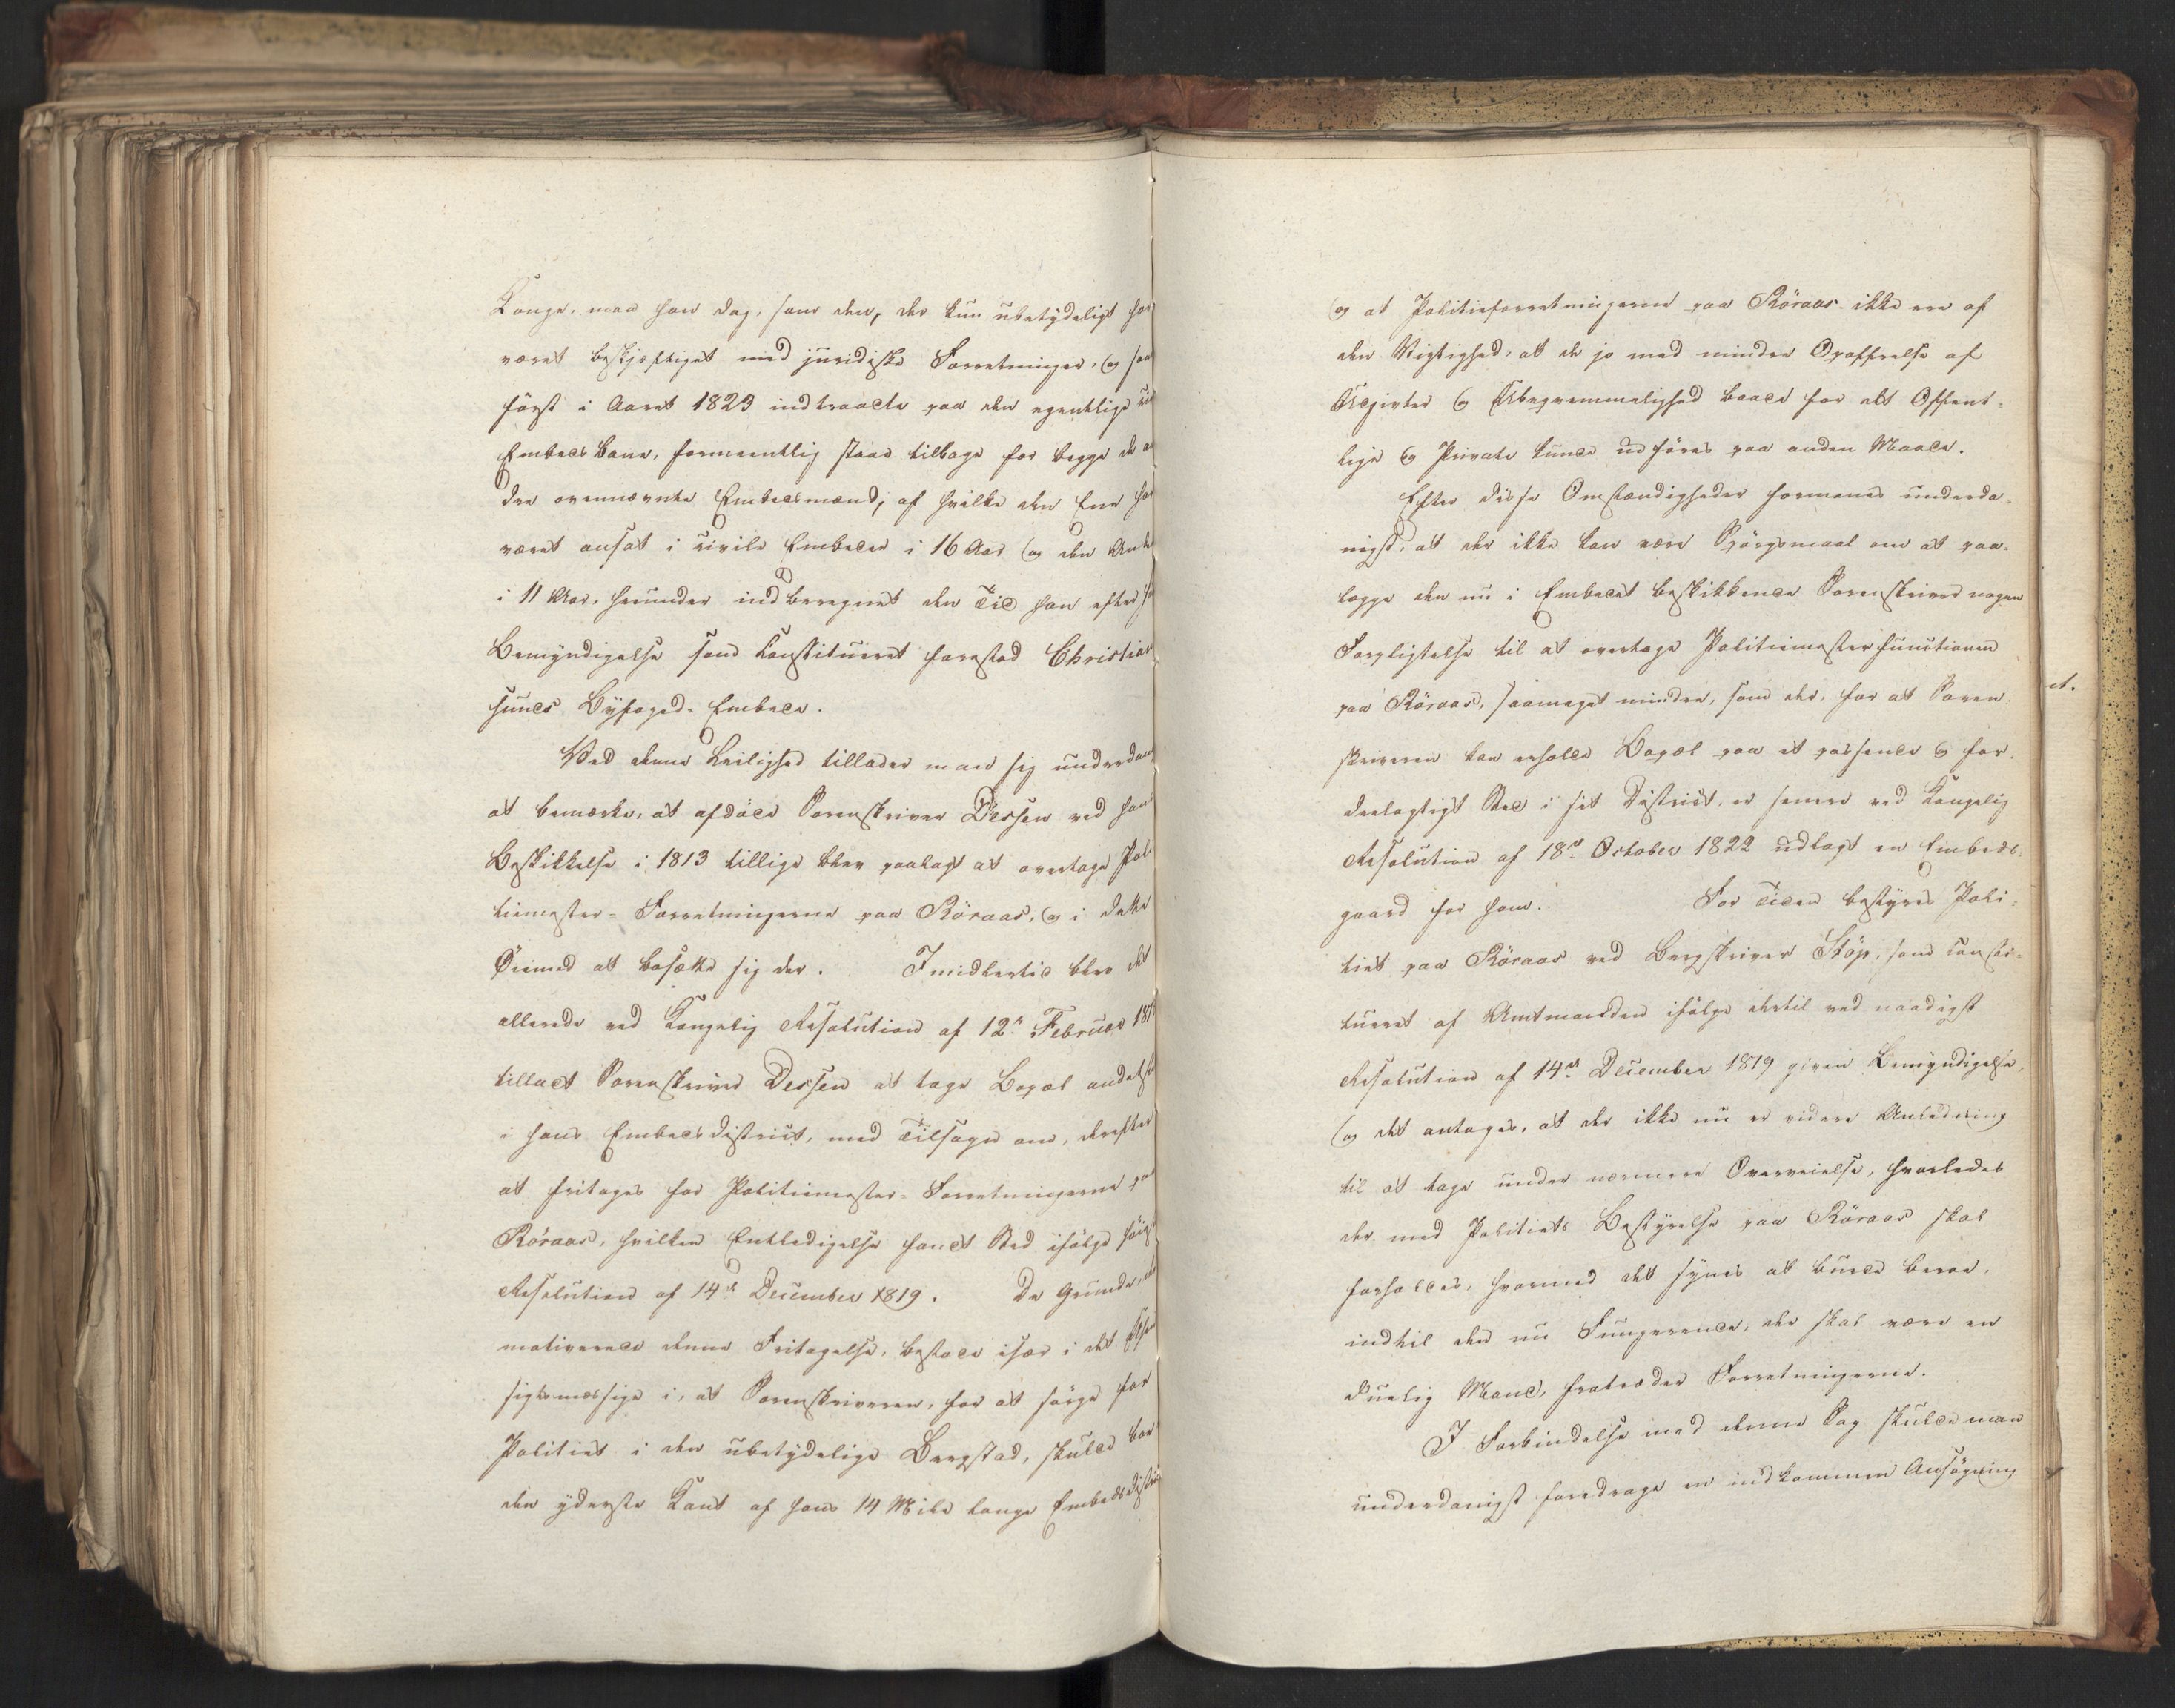 Konge, maa han dog, som den, der kun ubetydeligt har
været beskjæftiget med juridiske Forretninger, og som
först i Aaret 1823 indtraadte paa den egentlige
Embedsbane, formeentlig staae tilbage for begge de an
dre ovennævnte Embedsmænd, af hvilke den Ene har
været ansat i civile Embeder i 16 Aar og den Anden
i 11 Aar, herunder indberegnet den Tid han efter
Bemyndigelse som Constitueret forestod Christian
sunds Byfoged-Embede.
Ved denne Leilighed tillader man sig underdan
at bemærke, at afdöde Sorenskriver Dessen ved hans
Beskikkelse i 1813 tillige blev paalagt at overtage Poli
tiemester-Forretningerne paa Röraas, og i dette
Öiemed at bosætte sig der. Imidlertid blev det
allerede ved Kongelig Resolution af 12te Februar
tilladt Sorenskriver Dessen at tage Bopæl andetsteds
i hans Embedsdistrict, med Tilsagn om, derefter
at fritages for Politiemester-Forretningerne paa
Röraas, hvilken Entledigelse fandt Sted ifölge höie
Resolution af 14de December 1819. De Grunde, der
motiverede denne Fritagelse, bestode især i det Uhen
sigtsmæssige i, at Sorenskriveren, for at sörge for
Politiet i den ubetydelige Bergstad, skulde boe
den yderste Kant af hans 14 Mile lange Embedsdistric
og at Politieforretningerne paa Röraas ikke ere af
den Vigtighed, at de jo med mindre Opoffrelse af
Udgivter og Ubeqvemmelighed baade for det Offent-
lige og Private kunde udföres paa anden Maade.
Efter disse Omstændigheder formenes underda-
nigst, at der ikke kan være Spörgsmaal om at paa-
lægge den nu i Embedet beskikkende Sorenskriver nogen
Forpligtelse til at overtage Politiemesterfunctionen
paa Röraas, saameget mindre, som der, for at Soren-
skriveren kan erholde Bopæl paa et passende og for-
deelagtigt Sted i sit District, er senere ved Kongelig
Resolution af 18de October 1822 udlagt en Embeds-
gaard for ham. For Tiden bestyres Poli-
tiet paa Röraas ved Bergskriver Stöp, som consti-
tueret af Amtmanden ifölge dertil ved naadigst
Resolution af 14de December 1819 given Bemyndigelse,
og det antages, at der ikke nu er videre Anledning
til at tage under nærmere Overveielse, hvorledes
der med Politiets Bestyrelse paa Röraas skal
forholdes, hvormed det synes at burde beroe,
indtil den nu Fungerende, der skal være en
duelig Mand, fratræder Forretningerne.
I Forbindelse med denne Sag skulde man
underdanigst foredrage en indkommen Ansögning
et.